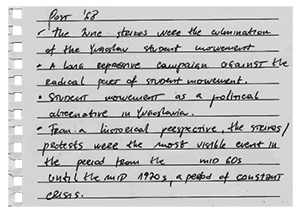 Post '68
• The June strikes were the culmination
of the Yugoslav student movement
• A long repressive campaign against the
radical part of student movement.
• Student movement as a political
alternative in Yugoslavia.
• From a historical perspective, the strikes/
protests were the most visible event in
the period from the mid 60s
until the mid 1970s, a period of constant
crisis.